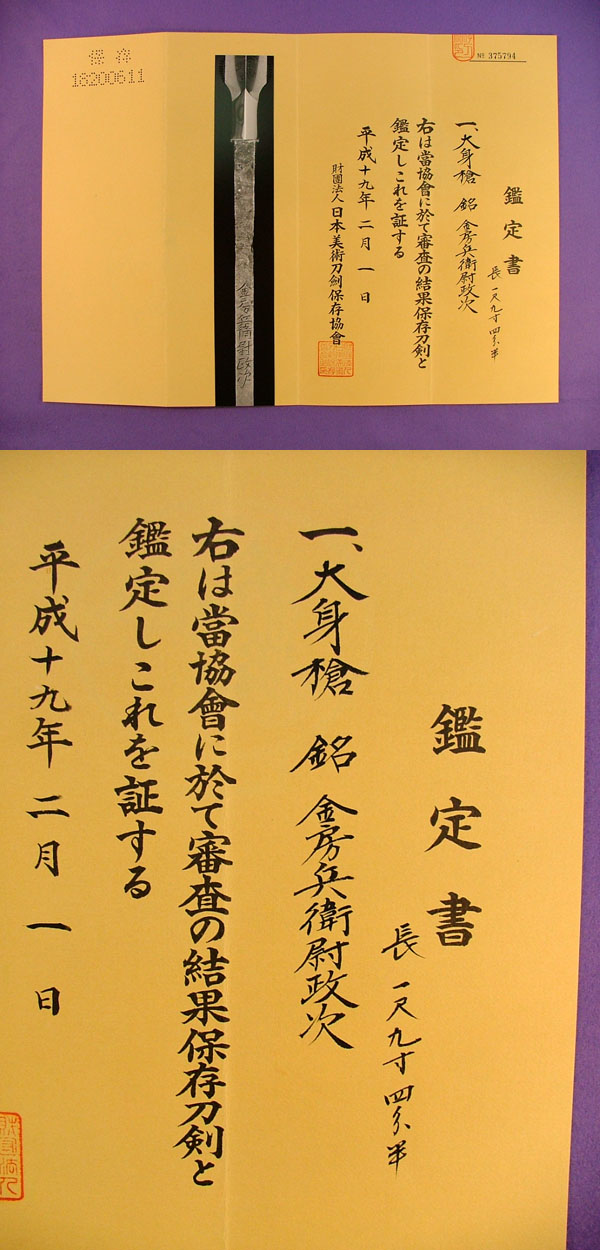 保存
18200611
№ 375794
鑑定書
長 一尺九寸四分半
一、大身槍 銘 金房兵衛尉政次
右は當協會に於て審査の結果保存刀剣と
鑑定しこれを証する
平成十九年二月一日
財團法人 日本美術刀剣保存協會
金房兵衛尉政次
鑑定書
長 一尺九寸四分半
一、大身槍 銘 金房兵衛尉政次
右は當協會に於て審査の結果保存刀剣と
鑑定しこれを証する
平成十九年二月一日